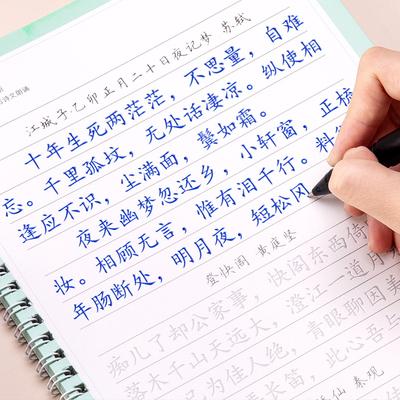 诗文朗诵
江城子·乙卯正月二十日夜记梦 苏轼
十年生死两茫茫，不思量，自难
忘。千里孤坟，无处话凄凉。纵使相
逢应不识，尘满面，鬓如霜。
夜来幽梦忽还乡，小轩窗，正梳
妆。相顾无言，惟有泪千行。料
年肠断处，明月夜，短松冈
登快阁 黄庭坚
痴儿了却公家事，快阁东西倚
落木千山天远大，澄江一道月
已为佳人绝，青眼聊因美
弄长笛，此心吾与
仙 秦观